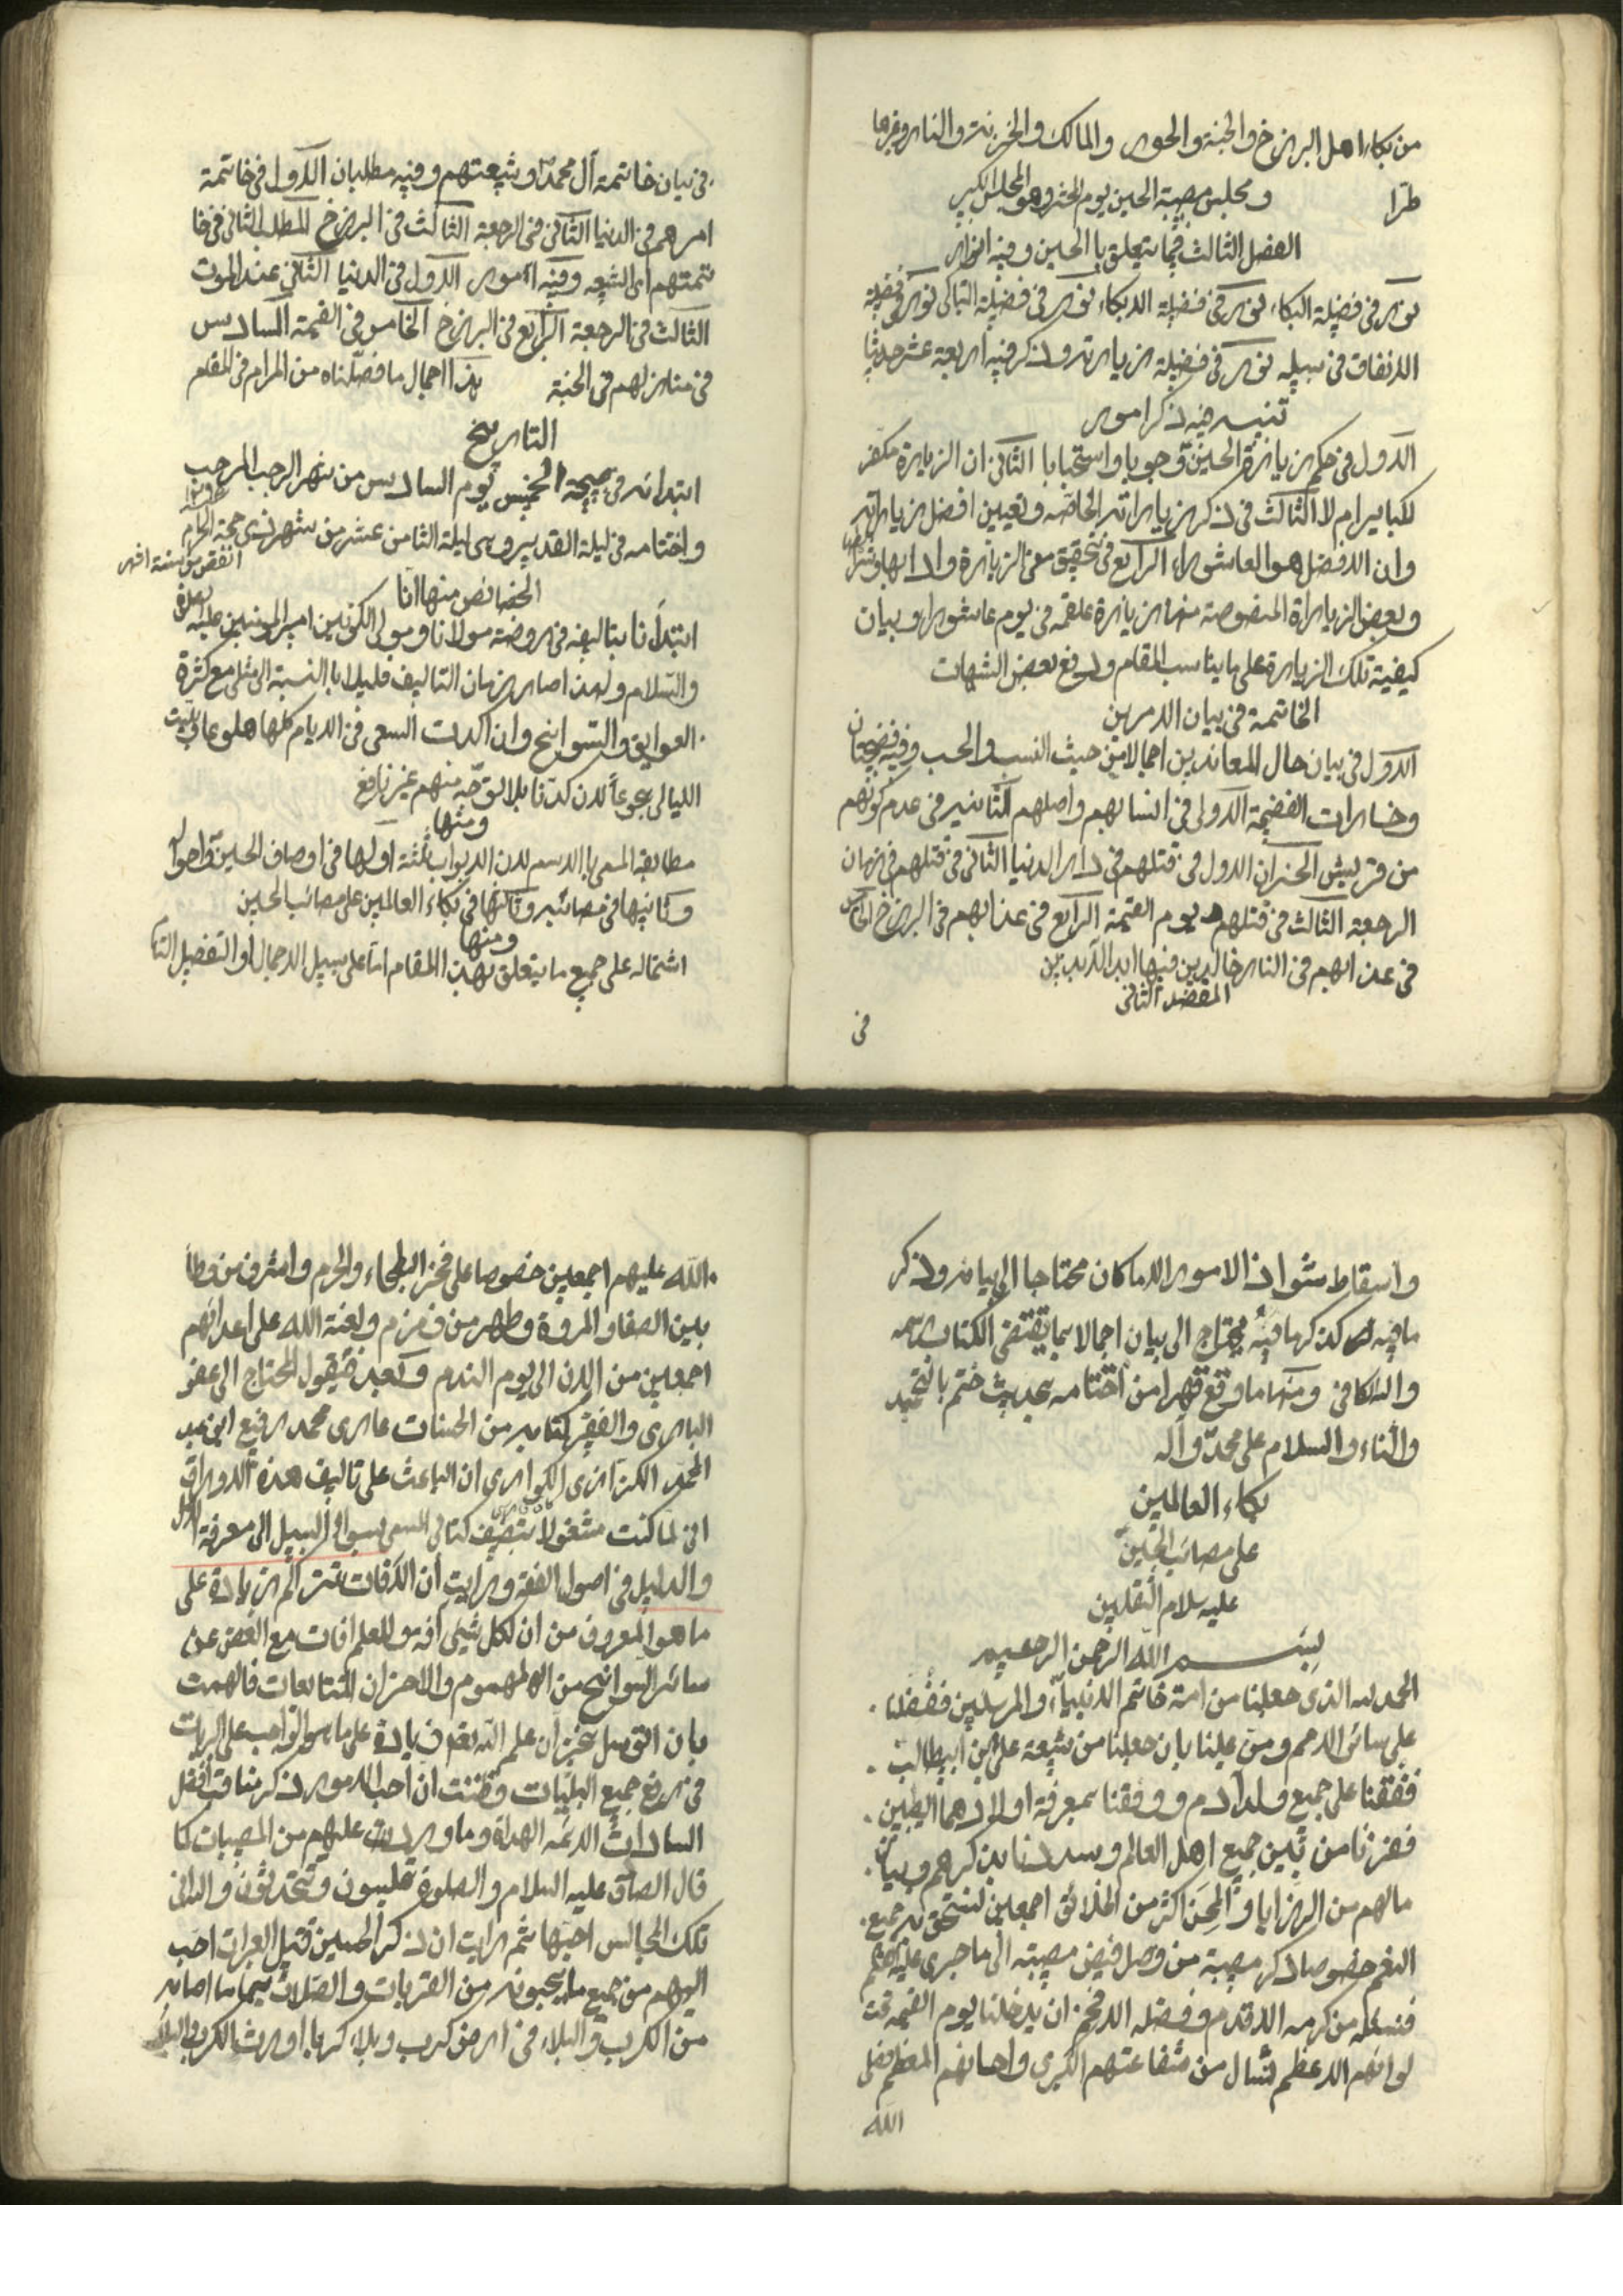 من بكاء اهل البرزخ والجنة والحور والمالك والخزنة والنار وغيرها
طرّا ومجلس مصيبة الحسين يوم الحشر وهو المجلس الكبير
الفصل الثالث فيما يتعلق بالحسين وفيه انوار
نور في فضيلة البكاء نور في فضيلة الابكاء نور في فضيلة التباكي نور في فضيلة
الانفاق في سبيله نور في فضيلة زيارته وذكر فيه اربعة عشر حديثا
تنبيه فيه ذكر امور
الاول في حكم زيارة الحسين وجوبا واستحبابا الثاني ان الزيارة مكفر
للكباير ام لا الثالث في ذكر زياراته الخاصه وتعيين افضل زياراته
وان الافضل هو العاشوراء الرابع في تحقيق معنى الزيارة وادابها وشرايطها
وبعض الزياراة المنصوصة منها زيارة علقمه في يوم عاشورا وبيان
كيفية تلك الزيارة على ما يناسب المقام ودفع بعض الشبهات
الخاتمة في بيان الامرين
الاول في بيان حال المعاندين اجمالا من حيث النسب والحسب وفيه فضيحتان
وخسارات الفضيحة الاولى في انسابهم واصلهم الثانيه في عدم كونهم
من قريش الخسران الاول في قتلهم في دار الدنيا الثاني في قتلهم في زمان
الرجعة الثالث في قتلهم يوم القيمة الرابع في عذابهم في البرزخ الخامس
في عذابهم في النار خالدين فيها ابد الابدين
المقصد الثاني
في
في بيان خاتمة آل محمد وشيعتهم وفيه مطلبان الاول في خاتمة
امرهم في الدنيا الثاني في الرجعة الثالث في البرزخ المطلب الثاني في خا
تمتهم اى الشيعه وفيه امور الاول في الدنيا الثاني عند الموت
الثالث في الرجعة الرابع في البرزخ الخامس في القيمة السادس
في منازلهم في الجنة هذا اجمال ما فصّلناه من المرام في المقام
التاريخ
ابتدائه في صبيحة الخميس يوم السادس من شهر الرجب المرجب
واختتامه في ليلة الغدير وهي ليلة الثامن عشر من شهر ذي حجة الحرام
الخصائص منها انّا
ابتدأنا بتاليفه في روضة مولانا ومولى الكونين امير المؤمنين عليه الصلوة
والسّلام ولهذا صار زمان التاليف قليلا بالنسبة الى مثلي مع كثرة
العوايق والسّوانح وان اكدت السعى في الايام كلها هلوعا وبيت
الليالي جوعاً لان كدّنا بلا توجّه منهم غير نافع
ومنها
مطابقة المسمى بالاسم لان الابواب ثلثة اولها في اوصاف الحسين واحواله
وثانيها في مصائبه وثالثها في بكاء العالمين على مصائب الحسين
ومنها
اشتماله على جميع ما يتعلق بهذا المقام اما على سبيل الاجمال او التفصيل التا
واسقاط شواذ الامور الا ما كان محتاجا الى بيانه وذكر
ما فيه كذكرها فيه يحتاج الى بيان اجمالا بما يقتضى الكتاب
والكافي ومنها ما وقع قهرا من اختتامه بحديث ختم بالتحميد
والثناء والسلام على محمدّ وآله
بكاء العالمين
على مصائب الحسين
عليه سلام الثقلين
بسم الله الرحمن الرحيم
الحمد لله الذى جعلنا من امة خاتم الانبياء والمرسلين ففضّلنا
على سائر الامم ومنّ علينا بان جعلنا من شيعة على ابن ابيطالب
ففقنا على جميع ولد آدم ووفقنا بمعرفة اولادهما الطيبين
ففزنا من بين جميع اهل العالم وسددنا بذكرهم وبيان
مالهم من الرزايا والمحن اكثر من الخلائق اجمعين لنستحق به جميع
النعم خصوصا ذكر مصيبة من وصل فيض مصيبته الى ما جرى عليه القلم
فنسئله من كرمه الاقدم وفضله الافخم ان يدخلنا يوم القيمه تحت
لوائهم الاعظم لننال من شفاعتهم الكبرى واحسانهم المعظم فصلى
الله
الله عليهم اجمعين خصوصا على فخر البطحاء والحرم واشرف من وطأ
بين الصفا والمروة وطهر من زمزم ولعنة الله على اعدائهم
اجمعين من الان الى يوم الندم وبعد فيقول المحتاج الى عفو
البارى والفقير كتابه من الحسنات عارى محمد رفيع ابن عبد
المحمد الكزازى الكوارى ان الباعث على تاليف هذه الاوراق
انى لما كنت مشغولا بتصنيف كتابى المسمى بسواء السبيل الى معرفة
والدليل في اصول الفقه ورايت ان الآفات تتراكم زيادة على
ما هو المعروف من ان لكل شيئى آفة وللعلم افات مع الغض عن
سائر السوانح من الهموم والاحزان المتتابعات فالهمت
بان التوسل بخزان علم الله يعد زيادة على ما هو الواجب على البريات
في رفع جميع البليّات وظننت ان احب الامور ذكر مناقب افضل
السادات الائمه الهداة وما وردت عليهم من المصيبات كما
قال الصادق عليه السلام والصلوة تجلسون وتتحدثون والله انى
تلك المجالس احبّها ثم رايت ان ذكر الحسين قتيل العبرات احب
اليهم من جميع ما يحبونه من القربات والصّلات سيما ما اصابه
من الكرب والبلاء في ارض كرب وبلاء كربا اورث الكرب والبلا